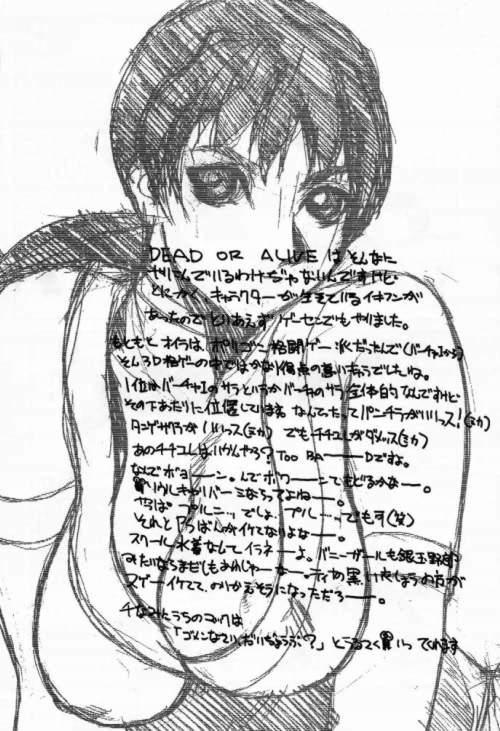 DEAD OR ALIVEはそんなに
やりこんでいるわけぢゃないんですけど
とにかく、キャラクターが生きているイキフンが
あったのでとりあえずゲーセンでもやりました。
もともとオイラは、ポリゴン格闘ゲー派だったんで(バーチャ1から)
そん3D格ゲーの中ではかなり得点の高いキャラでしたね。
1位はバーチャ1のサラというかバーチャのサラ全体的なんですけど
その下あたりに位置しています。なんてったってパンチラがいいっス!(ばか)
がいいっス(ばか) でもチチユレがダメっス(ばか)
あのチチユレはいかんやろ? Too BA――Dですよ。
なんでボヨ――ン。んでボワ――ンてもどるかな――。
よね――。
やっぱ。プルルン…でしょ。プルー…でもす(笑)
それと
スクール水着なんてイラネ――よ。バニーガールも銀玉野郎
みたいなら な――。 黒い いしょうの方が
スゲーイケてて、のりかえそうになっただろ――。
ちなみにうちのコックは
「ゴメンなさい、だいじょうぶ?」とうるさく言ってくれます